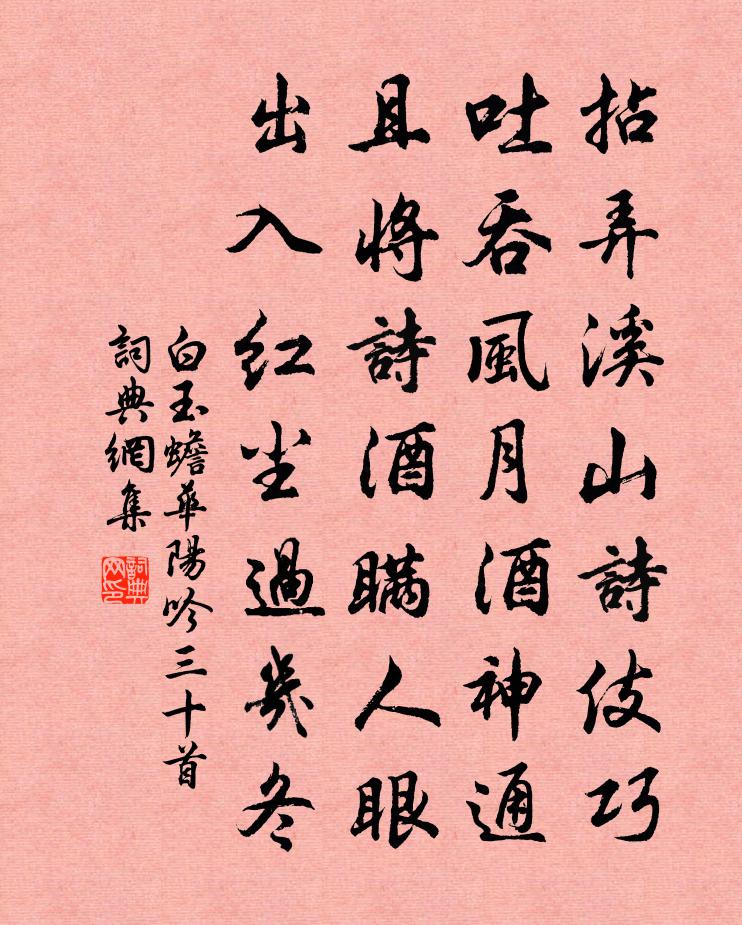 拈弄溪山詩伎巧
吐吞風月酒神通
且將詩酒瞞人眼
出入红尘過幾冬
白玉蟾華陽吟三十首
詞典網集
詞典网印